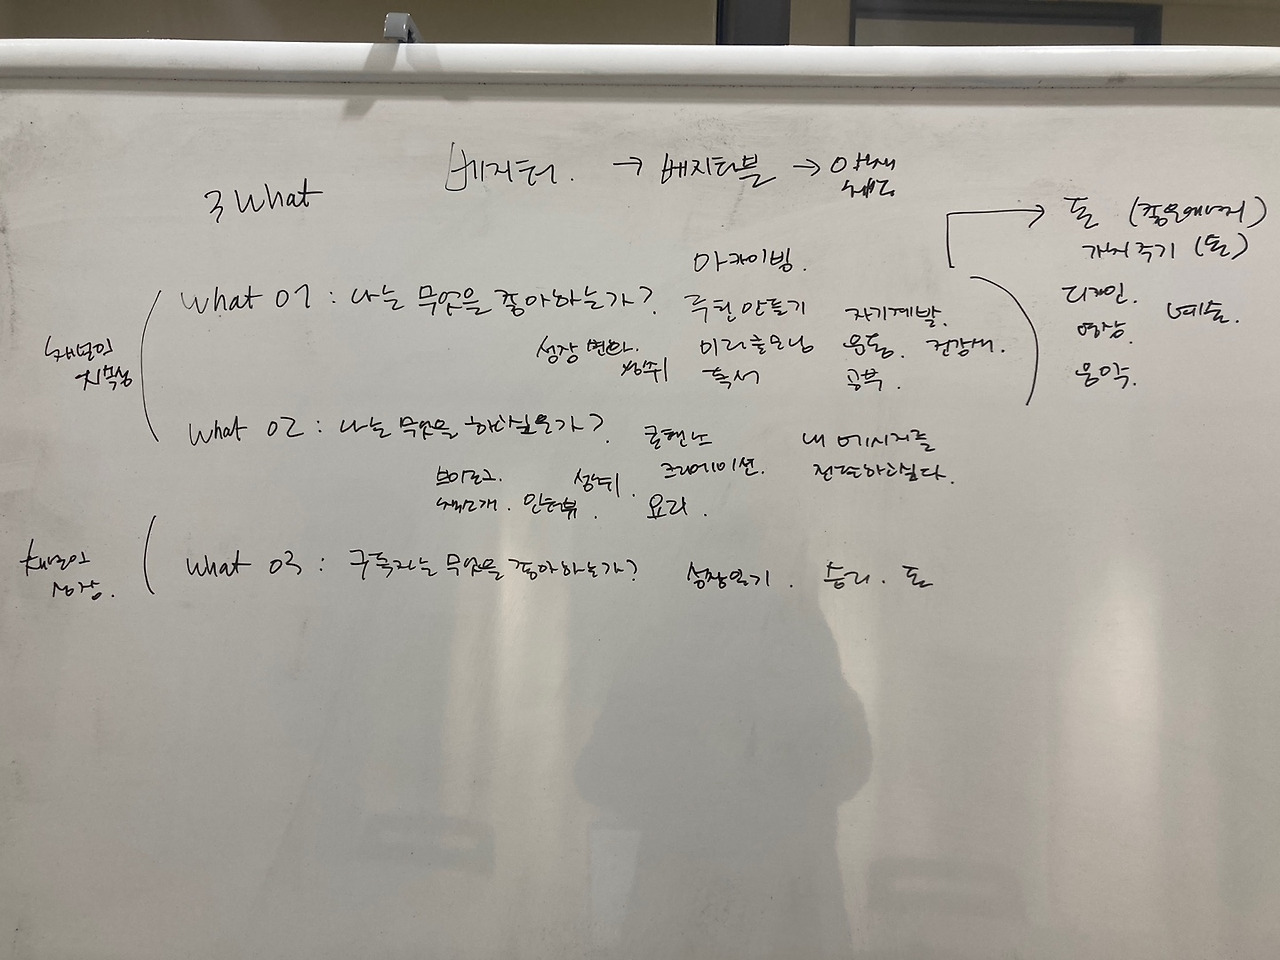 베지터. → 베지터블 → 야채
3 What
돈 (좋은에너지)
가치주기 (돈)
아카이빙.
What 01 : 나는 무엇을 좋아하는가?
루틴만들기
자기계발.
디자인.
예술.
성장 변화.
미라클모닝
운동. 건강식.
영상.
채널의
지속성
성취
독서
공부.
음악.
What 02 : 나는 무엇을 하고싶은가?
콘텐츠
크리에이션.
내 메시지를
전달하고싶다.
브이로그.
성취.
책소개. 인터뷰.
요리.
채널의
성장.
What 03 : 구독자는 무엇을 좋아하는가?
성장일기. 승리. 돈